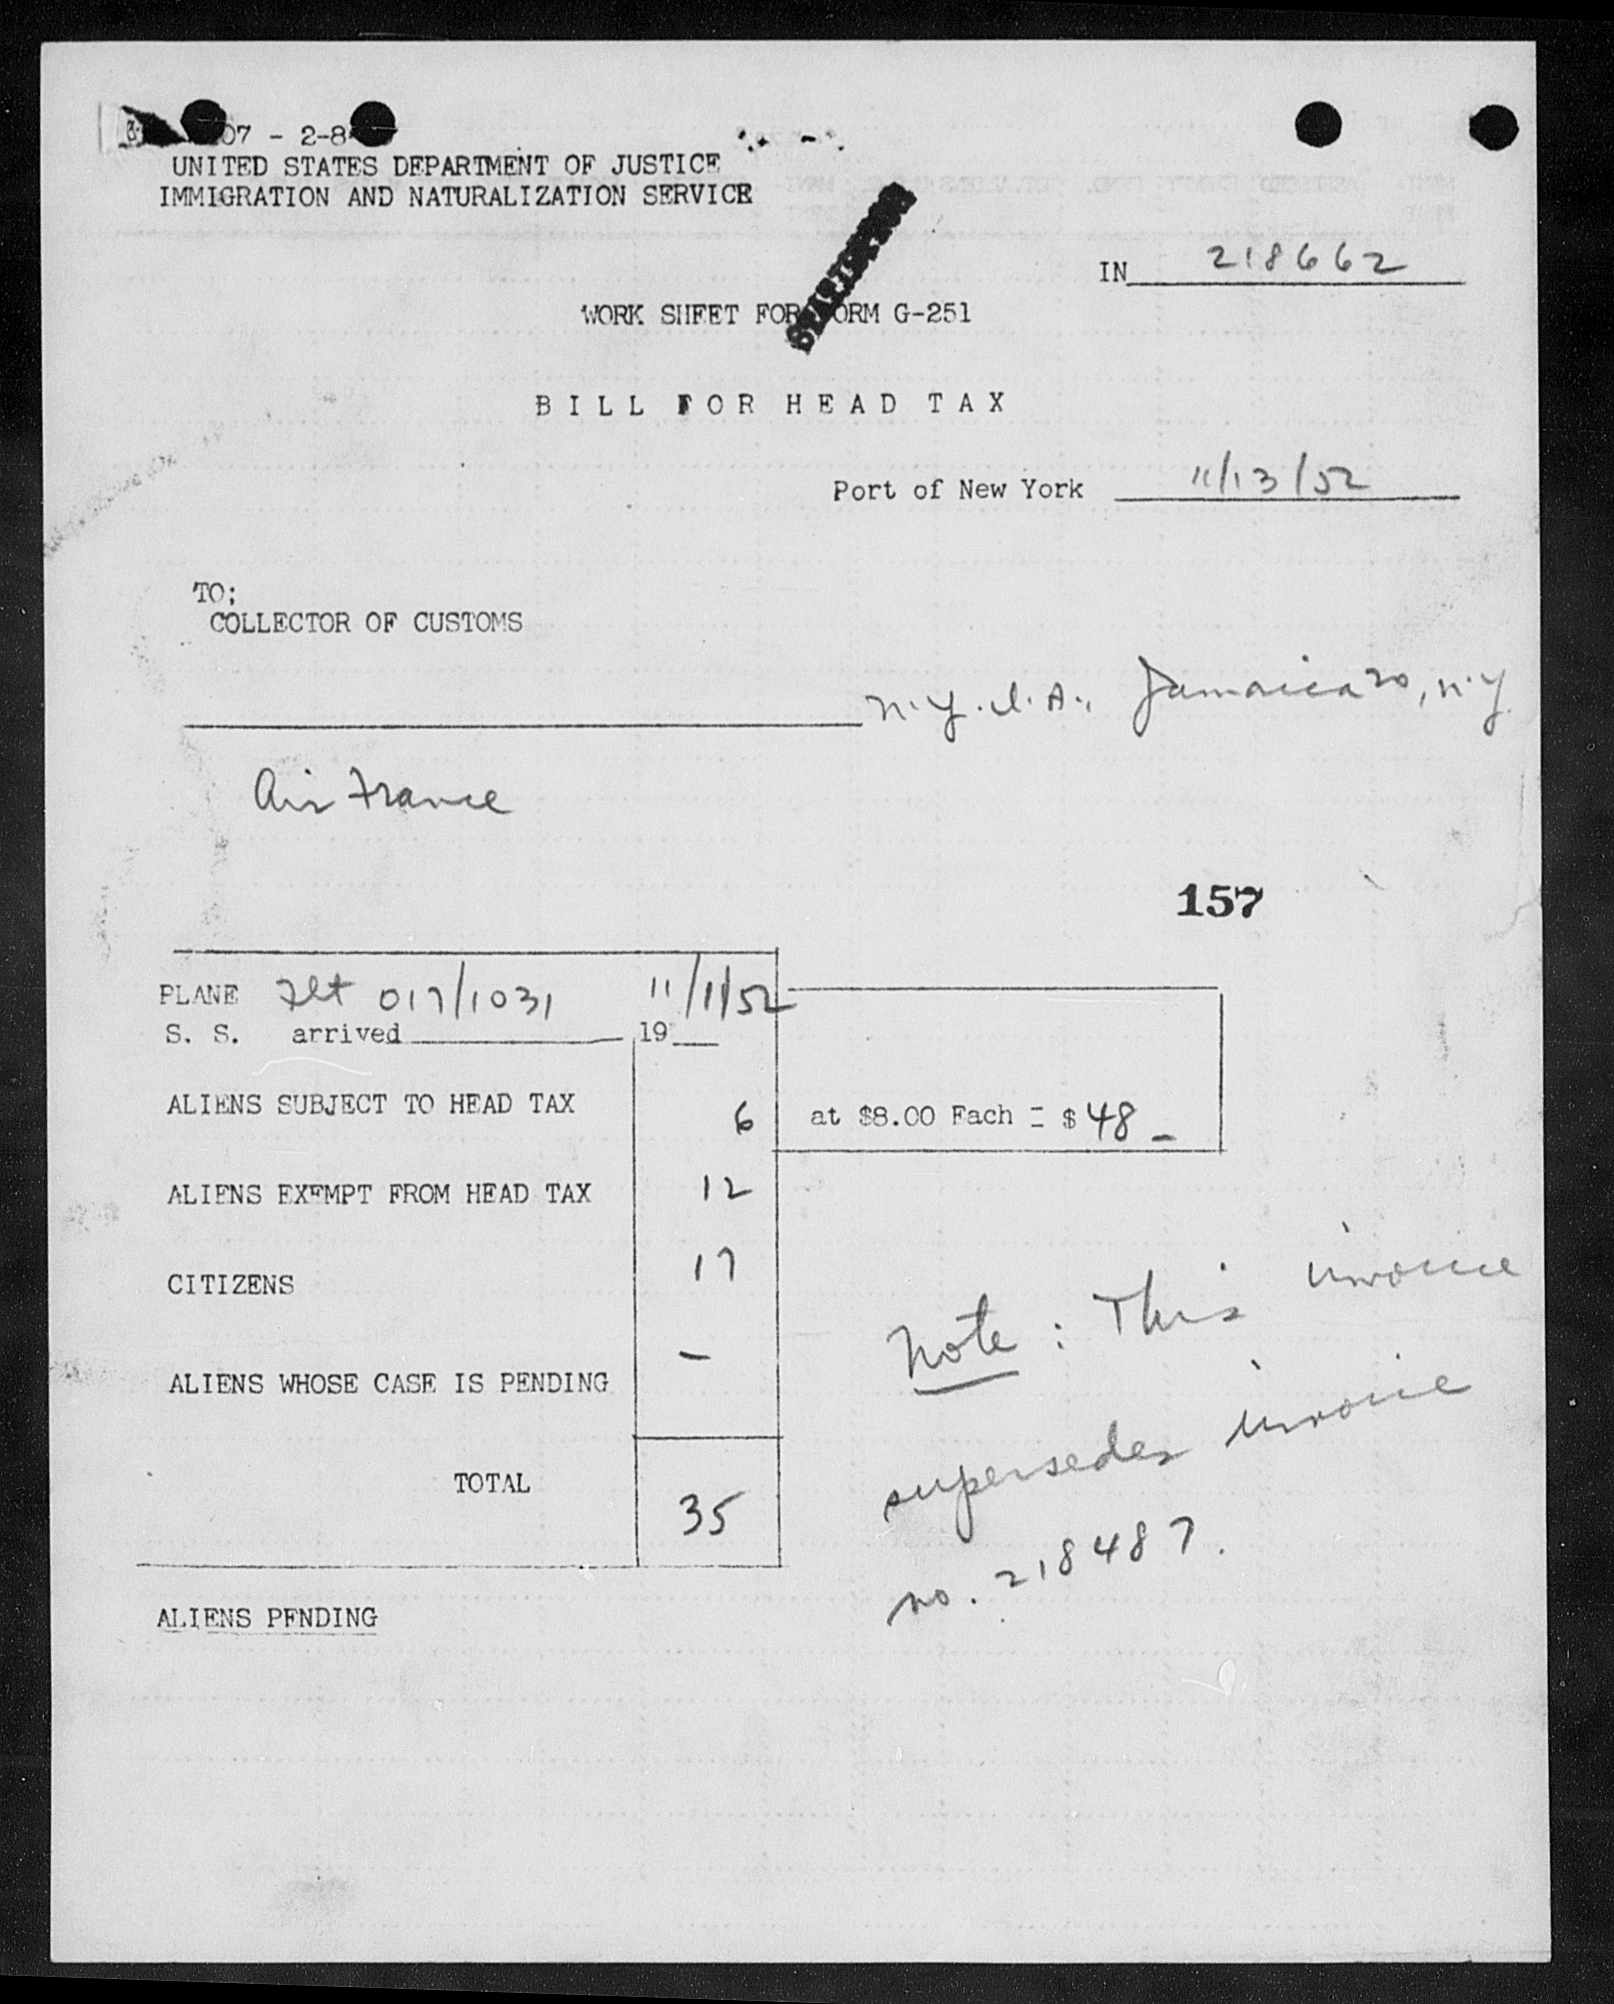 07 - 2-8
UNITED STATES DEPARTMENT OF JUSTICE
IMMIGRATION AND NATURALIZATION SERVICE
IN 218662
WORK SHEET FOR FORM G-251
BILL FOR HEAD TAX
Port of New York 11/13/52
TO;
COLLECTOR OF CUSTOMS
N.Y.I.A., Jamaica 20, N.Y.
Air France
157
PLANE Flt 017/1031 11/11/52
S. S. arrived 19
ALIENS SUBJECT TO HEAD TAX 6 at $8.00 Each = $ 48 -
ALIENS EXEMPT FROM HEAD TAX 12
CITIZENS 17
ALIENS WHOSE CASE IS PENDING -
TOTAL 35
Note: This invoice
supersedes invoice
no. 218487.
ALIENS PENDING